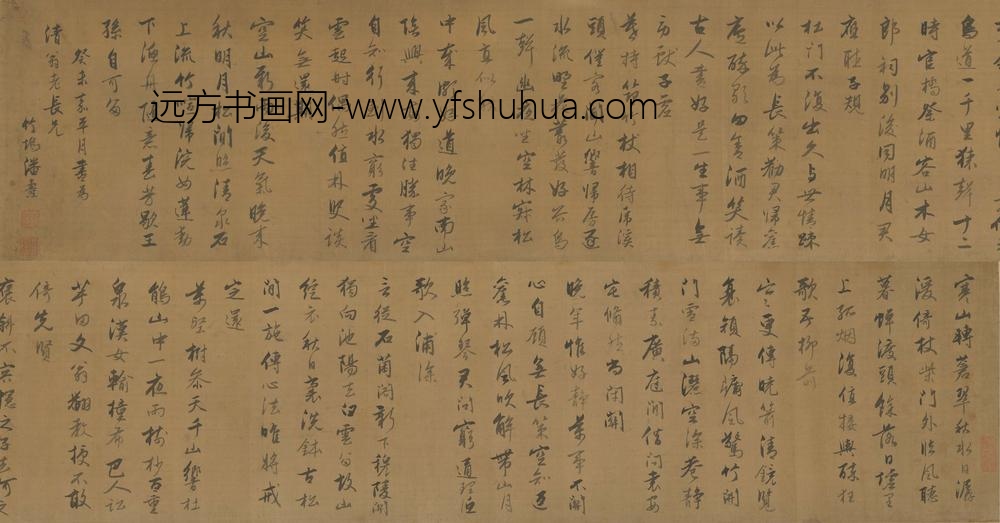 鳥道一千里猿聲十二
時官橋祭酒客山木女
郎祠別後同明月君
應聽子規
杜門不復出久與世情疎
以此為長策勸君歸舊
廬醉歌田舍酒笑讀
古人書好是一生事無
勞獻子虛
暮持筇竹杖相待虎溪
頭催客聞山響歸房逐
水流野花叢發好谷鳥
一聲幽夜坐空林寂松
風直似秋
中歲頗好道晚家南山
陲興來每獨往勝事空
自知行到水窮處坐看
雲起時偶然值林叟談
笑無還期
空山新雨後天氣晚來
秋明月松間照清泉石
上流竹喧歸浣女蓮動
下漁舟隨意春芳歇王
孫自可留
癸未嘉平月書為
清翁老長兄
竹塢潘
远方书画网-www.yfshuhua.com
寒山轉蒼翠秋水日潺
湲倚杖柴門外臨風聽
暮蟬渡頭餘落日墟里
上孤烟復值接輿醉狂
歌五柳前
寒更傳曉箭清鏡覽
衰顏隔牖風驚竹開
門雪滿山灑空深巷靜
積素廣庭閒借問袁安
宅翛然尚閉關
晚年惟好靜萬事不關
心自顧無長策空知返
舊林松風吹解帶山月
照彈琴君問窮通理漁
歌入浦深
言從石菌閣新下穆陵關
獨向池陽去白雲留故山
綻衣秋日裏洗鉢古松
間一施傳心法唯將戒
定還
萬壑樹參天千山響杜
鵑山中一夜雨樹杪百重
泉漢女輸橦布巴人訟
芋田文翁翻教授不敢
倚先賢
褒斜不容幰之子去何之